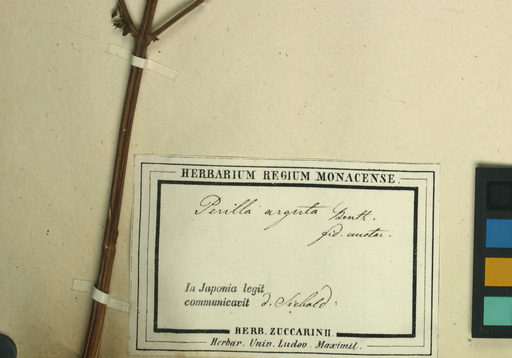 HERBARIUM REGIUM MONACENSE.
Perilla arguta Benth.
fid. auctor.
In Japonia legit
communicavit d. Siebold.
HERB. ZUCCARINII.
Herbar. Univ. Ludov. Maximil.